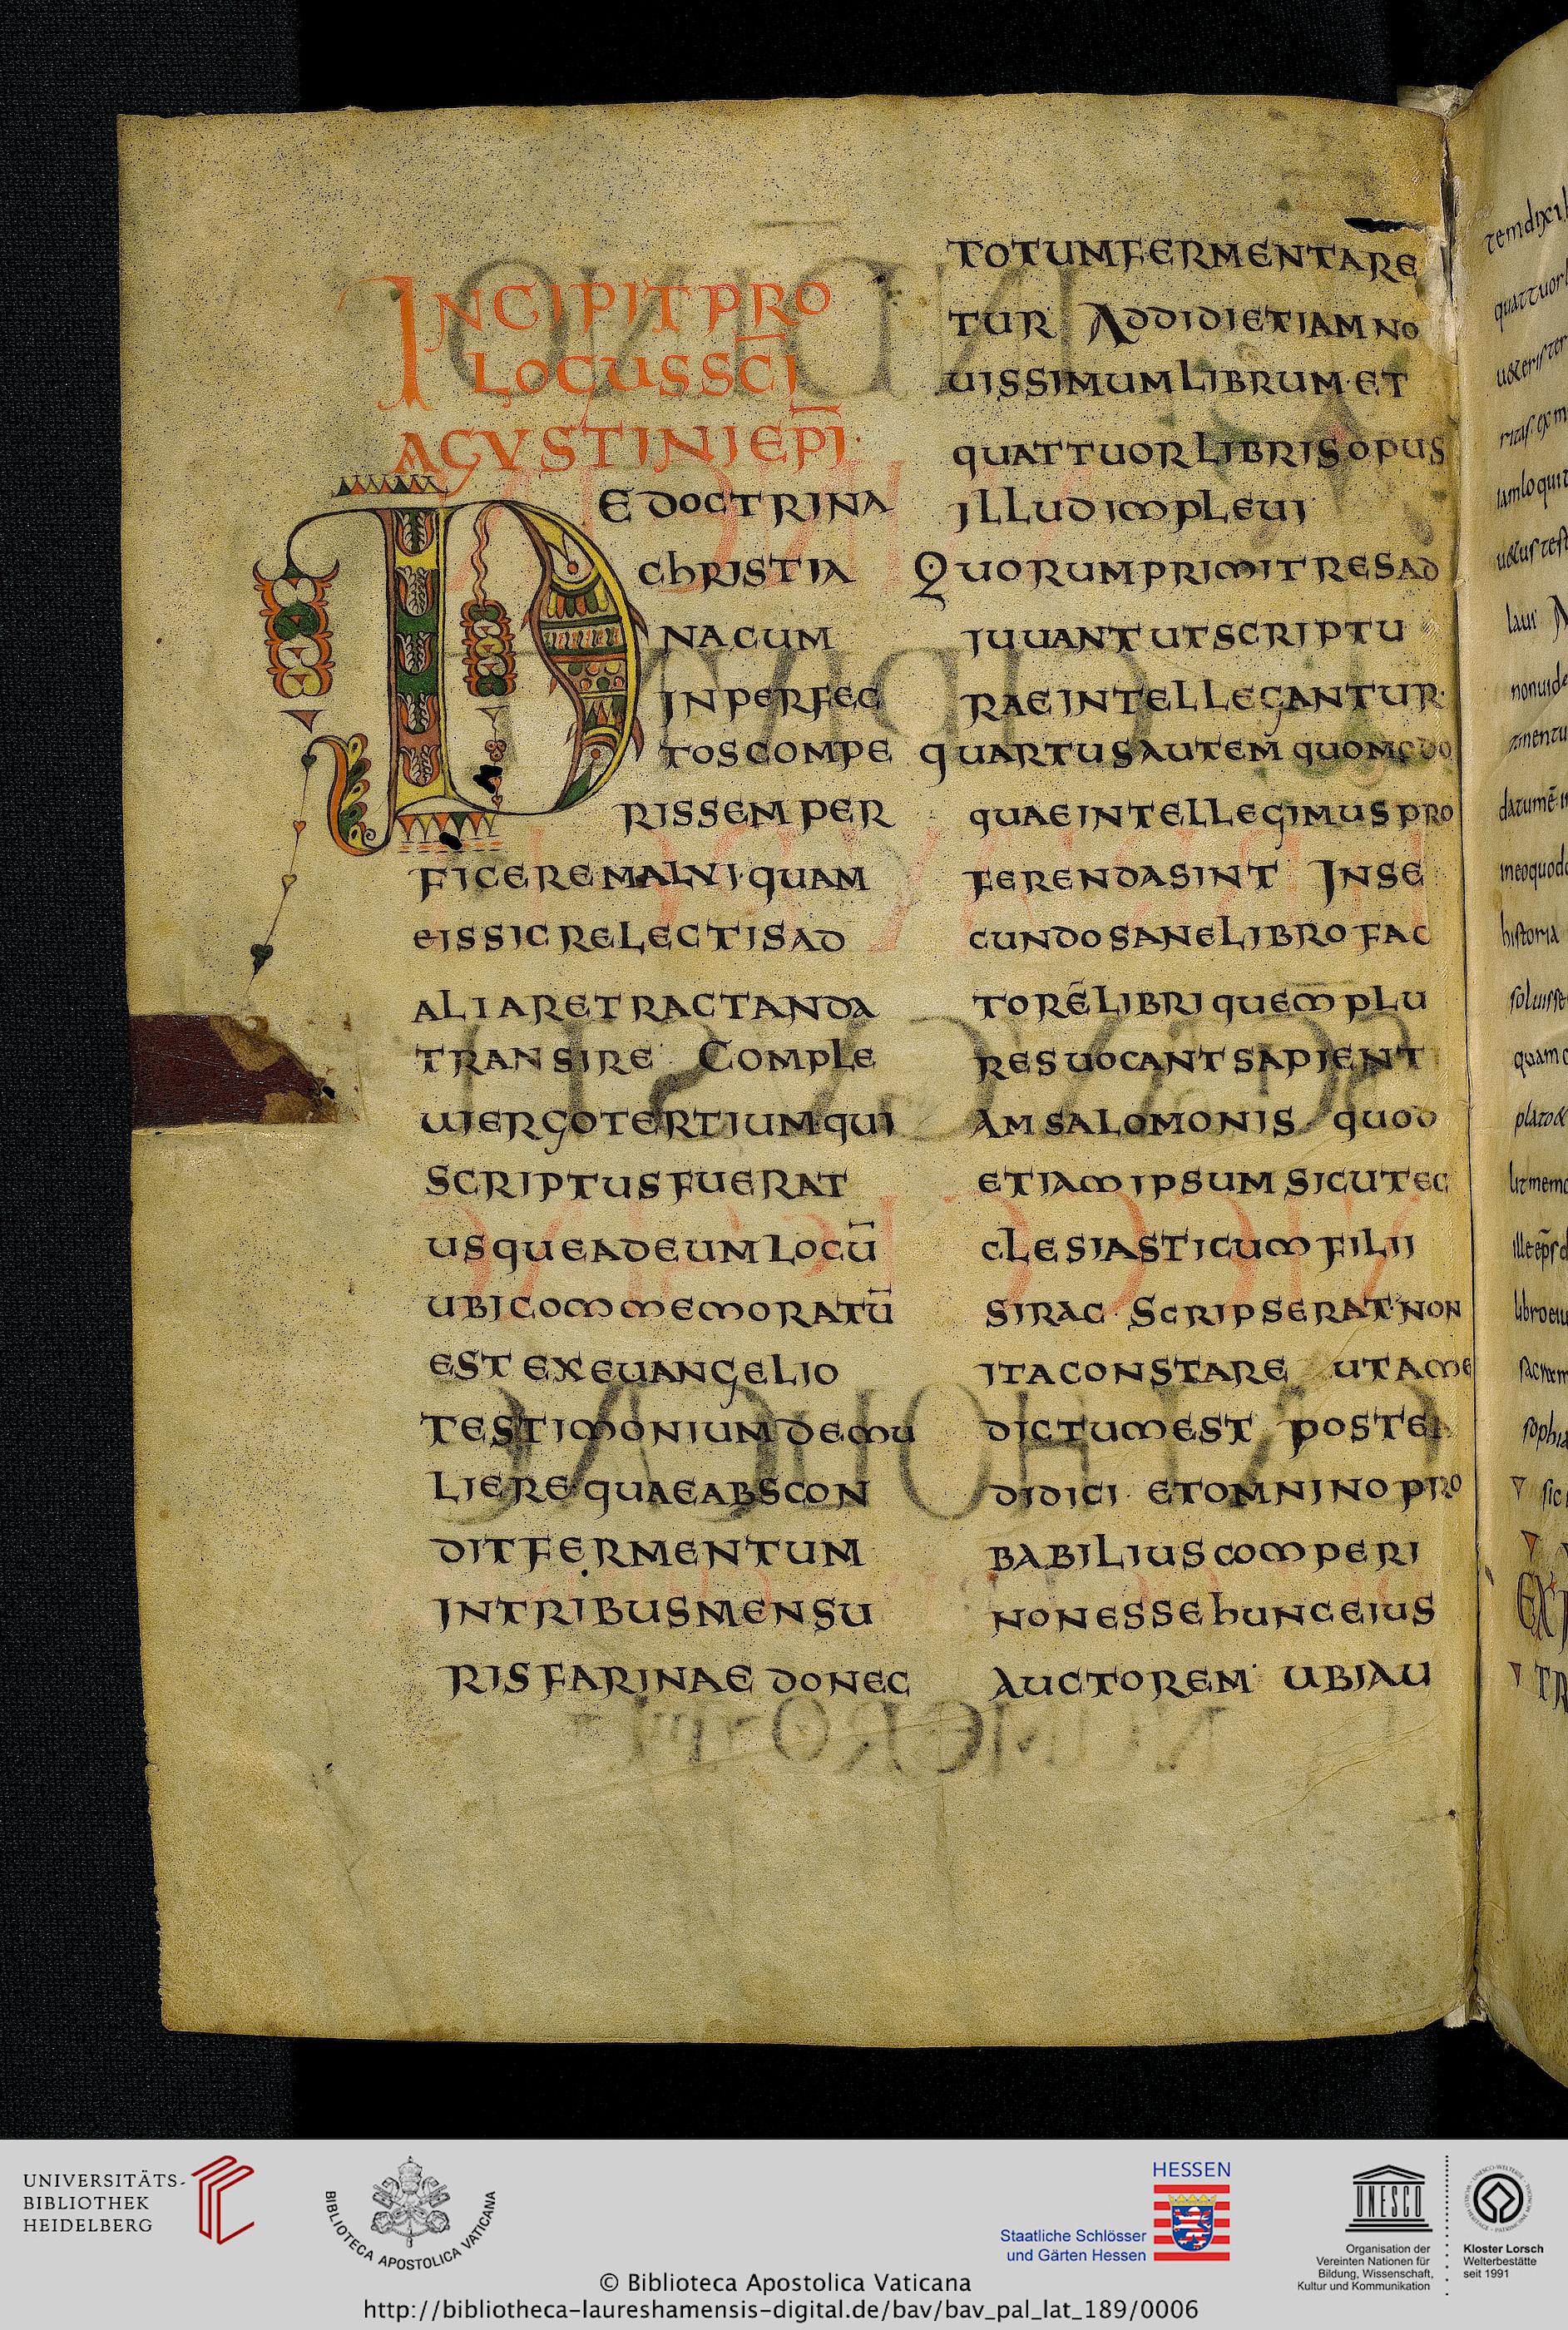 INCIPIT PRO
LOCUS SC̄I
AGVSTINI EP̄I·
DE DOCTRINA
CHRISTIA
NA CUM
INPERFEC
TOS COMPE
RISSEM PER
FICERE MALVI· QUAM
EIS SIC RELECTIS AD
ALIA RETRACTANDA
TRANSIRE COMPLE
UI ERGO TERTIUM QUI
SCRIPTUS FUERAT
USQUE AD EUM LOCŪ
UBI COMMEMORATŪ
EST EX EUANGELIO
TESTIMONIUM DE MU
LIERE QUAE ABSCON
DIT FERMENTUM
IN TRIBUS MENSU
RIS FARINAE DONEC
TOTUM FERMENTARE
TUR ADDIDI ETIAM NO
UISSIMUM LIBRUM· ET
QUATTUOR LIBRIS OPUS
ILLUD IMPLEUI
QUORUM PRIMI TRES AD
IUUANT UT SCRIPTU
RAE INTELLEGANTUR·
QUARTUS AUTEM QUOMODO
QUAE INTELLEGIMUS PRO
FERENDA SINT IN SE
CUNDO SANE LIBRO FAC
TORĒ LIBRI QUEM PLU
RES UOCANT SAPIENT
IAM SALOMONIS QUOD
ETIAM IPSUM SICUT EC
CLESIASTICUM FILII
SIRAC· SCRIPSERAT· NON
ITA CONSTARE UT A ME
DICTUM EST POSTEA
DIDICI ETOMNINO PRO
BABILIUS COMPERI
NON ESSE HUNC EIUS
AUCTOREM· UBI AU
UNIVERSITÄTS-
BIBLIOTHEK
HEIDELBERG
BIBLIOTECA APOSTOLICA VATICANA
HESSEN
Staatliche Schlösser
und Gärten Hessen
UNESCO
Organisation der
Vereinten Nationen für
Bildung, Wissenschaft,
Kultur und Kommunikation
Kloster Lorsch
Welterbestätte
seit 1991
© Biblioteca Apostolica Vaticana
http://bibliotheca-laureshamensis-digital.de/bav/bav_pal_lat_189/0006